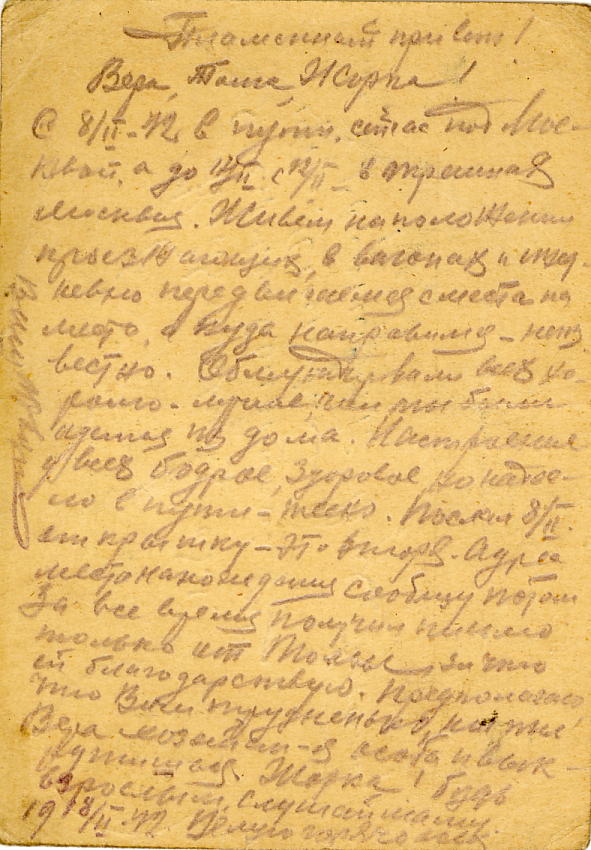 Пламенный привет!
Вера, Тома, Жорка!
С 8/II-42 в пути, сейчас под Мос-
квой, а до /II с 12/II в
Москвы. Живём на положении
проезжающих, в вагонах и
передвигаемся с места на
место, а куда направимся - неиз
вестно. Обмундировали всех хо-
рошо - лучше, чем мы были
одеты из дома. Настроение
у всех бодрое, здоровое, но надое-
ло в пути - тесно. Послал 8/II
открытку - это вторая. Адрес
местонахождения сообщу потом
За все время получил письмо
только от Томы, за что
ей благодарствую. Предполагаю
что Вам трудненько,
Вера
Жорка! будь
взрослым, слушай маму.
19 18/II-42. Целую горячо всех